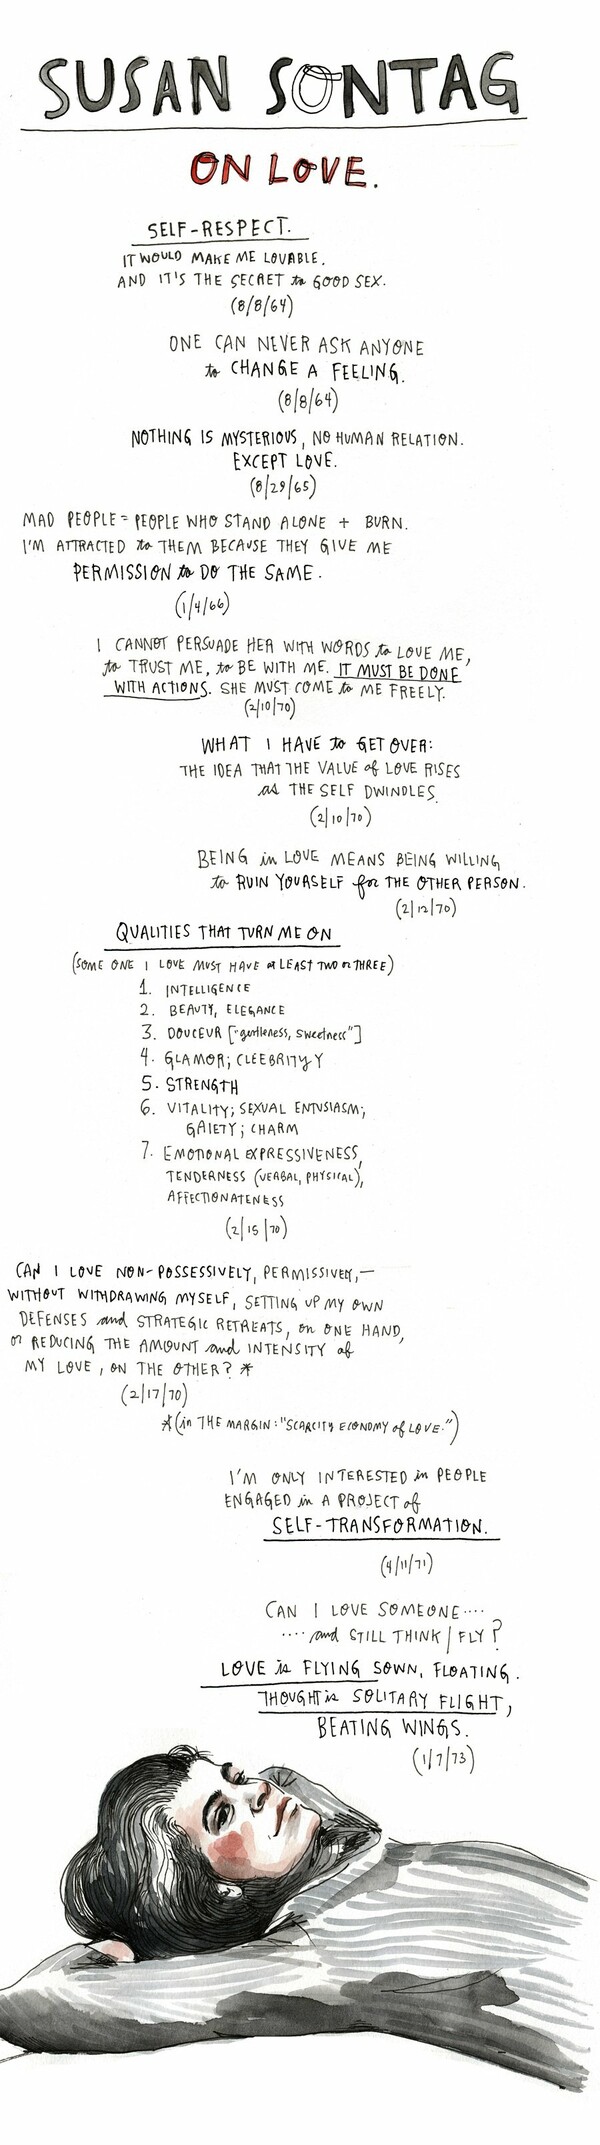 SUSAN SONTAG
ON LOVE.
SELF-RESPECT.
IT WOULD MAKE ME LOVABLE.
AND IT'S THE SECRET to GOOD SEX.
(8/8/64)
ONE CAN NEVER ASK ANYONE
to CHANGE A FEELING.
(8/8/64)
NOTHING IS MYSTERIOUS, NO HUMAN RELATION.
EXCEPT LOVE.
(8/29/65)
MAD PEOPLE = PEOPLE WHO STAND ALONE + BURN.
I'M ATTRACTED to THEM BECAUSE THEY GIVE ME
PERMISSION to DO THE SAME.
(1/4/66)
I CANNOT PERSUADE HER WITH WORDS to LOVE ME,
to TRUST ME, to BE WITH ME. IT MUST BE DONE
WITH ACTIONS. SHE MUST COME to ME FREELY.
(2/10/70)
WHAT I HAVE to GET OVER:
THE IDEA THAT THE VALUE of LOVE RISES
as THE SELF DWINDLES.
(2/10/70)
BEING in LOVE MEANS BEING WILLING
to RUIN YOURSELF for THE OTHER PERSON.
(2/12/70)
QUALITIES THAT TURN ME ON
(SOME ONE I LOVE MUST HAVE at LEAST TWO or THREE)
1. INTELLIGENCE
2. BEAUTY, ELEGANCE
3. DOUCEUR ["gentleness, sweetness"]
4. GLAMOR; CLEEBRITYY
5. STRENGTH
6. VITALITY; SEXUAL ENTUSIASM;
GAIETY; CHARM
7. EMOTIONAL EXPRESSIVENESS,
TENDERNESS (VERBAL, PHYSICAL),
AFFECTIONATENESS
(2/15/70)
CAN I LOVE NON-POSSESSIVELY, PERMISSIVELY,—
WITHOUT WITHDRAWING MYSELF, SETTING UP MY OWN
DEFENSES and STRATEGIC RETREATS, on ONE HAND,
or REDUCING THE AMOUNT and INTENSITY of
MY LOVE, ON THE OTHER? *
(2/17/70)
*(in THE MARGIN: "SCARCITY ECONOMY of LOVE.")
I'M ONLY INTERESTED in PEOPLE
ENGAGED in A PROJECT of
SELF-TRANSFORMATION.
(4/11/71)
CAN I LOVE SOMEONE....
.... and STILL THINK/FLY?
LOVE is FLYING SOWN, FLOATING.
THOUGHT is SOLITARY FLIGHT,
BEATING WINGS.
(1/7/73)